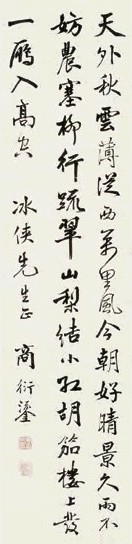 天外秋雲薄從西萬里風今朝好晴景久雨不
妨農塞柳行疏翠山梨結小紅胡笳樓上發
一鴈入高空 冰俠先生正 商衍鎏